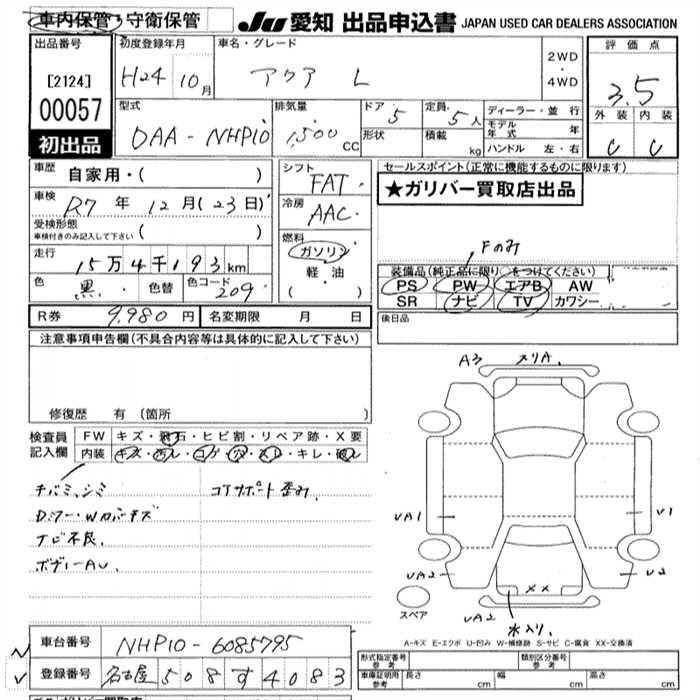 車内保管・守衛保管
JU 愛知 出品申込書 JAPAN USED CAR DEALERS ASSOCIATION
出品番号
[2124]
00057
初出品
初度登録年月
H24 10月
車名・グレード
アクア L
2WD
・
4WD
評価点
3.5
外装 内装
C C
型式
DAA-NHP10
排気量
1,500 CC
ドア
5
形状
定員
5人
積載
kg
ディーラー・並行
モデル年式 年
ハンドル 左・右
車歴
自家用・( )
車検
R7年 12月(23日)
受検形態
車検付きのみ記入して下さい ( )
走行
15万4千193km
色
黒
色替
色コード
209
シフト
FAT
冷房
AAC
燃料
ガソリン
軽油
( ・ )
セールスポイント(正常に機能するものに限ります)
★ガリバー買取店出品
Fのみ
装備品(純正品に限り○をつけてください)
PS PW エアB AW
SR ナビ TV カワシー
後日品
R券 9,980円 名変期限 月 日
注意事項申告欄(不具合内容等は具体的に記入して下さい)
修復歴 有(箇所 )
検査員記入欄
FW キズ・飛石・ヒビ割・リペア跡・X要
内装 キズ・汚レ・コゲ・穴・スレ・キレ・破レ
チバミ、シミ
コアサポート歪み
ナビ不良.
ボデーAU.
A3 メリA.
VA1
V1
VA2
V2
VA2
XX
水入り.
スペア
A-キズ E-エクボ U-凹み W-補修跡 S-サビ C-腐食 XX-交換済
車台番号 NHP10-6085795
登録番号 名古屋 508 す 4083
形式指定番号 参考
類別区分番号 参考
車庫証明用 参考 長さ cm 幅 cm 高さ cm